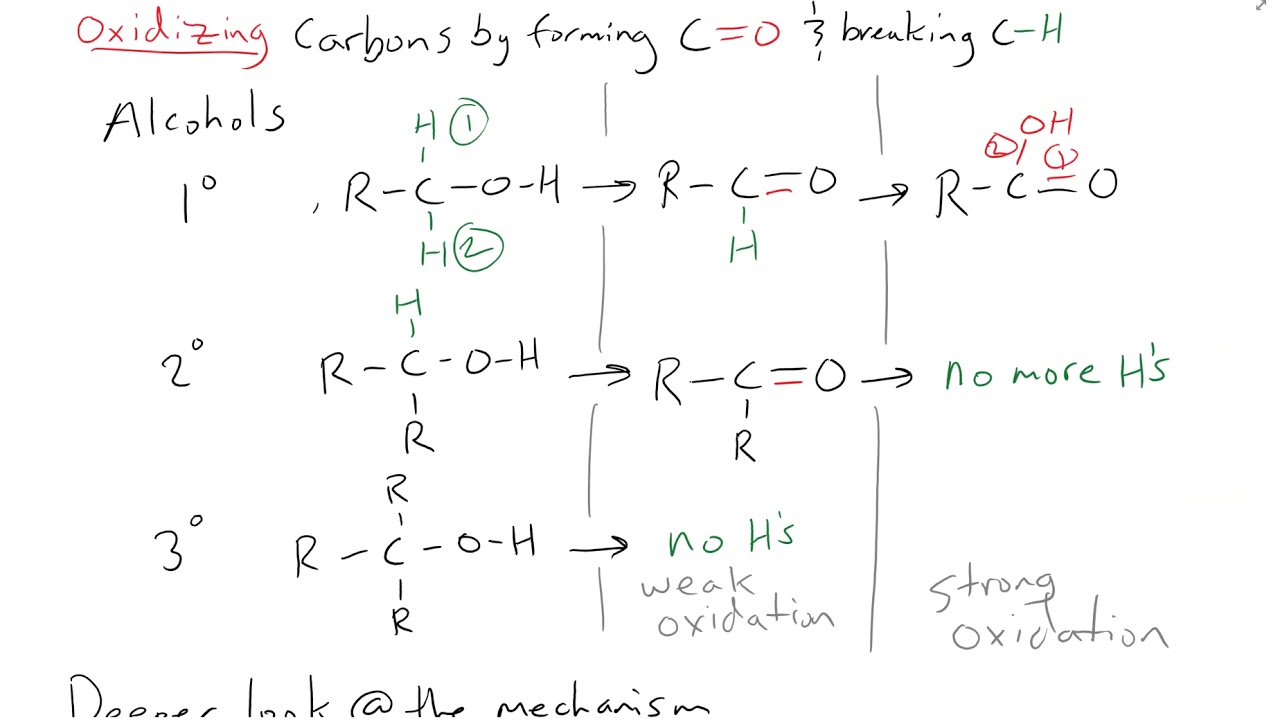 Oxidizing Carbons by forming C=O & breaking C-H
Alcohols
H ①
OH
② ①
1° , R-C-O-H → R-C=O → R-C=O
H ② H
H
2° R-C-O-H → R-C=O → no more H's
R R
R
3° R-C-O-H → no H's
R
weak oxidation
strong oxidation
Deeper look @ the mechanism